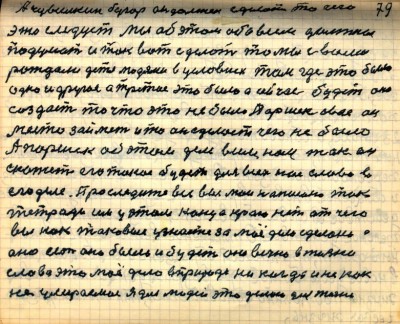 А кувшинкин бугор он должен сделать то чего 79
это следует мы об этом обо всем должны
подумат и так вот сделат то мы с вами
рождали дети людями в условиях там где это было
одно и другое а третие это было а сейчас будет оно
создаст то что это не было Паршек свае он
место займет и то он сделает чего не было
А паршек об этом деле всем, нам так он
скажет его такое будет для всех нас слово в
его деле. Проследите все вы мои написано так
тетради им у этом конца краю нет от чего
вы как таковые узнаете за моё дело сделано
оно ест оно было и будет оно вечно в жизни
слова это моё дело в природе ни когда и ни как
не умираемое Я для людей это делаю для жизни